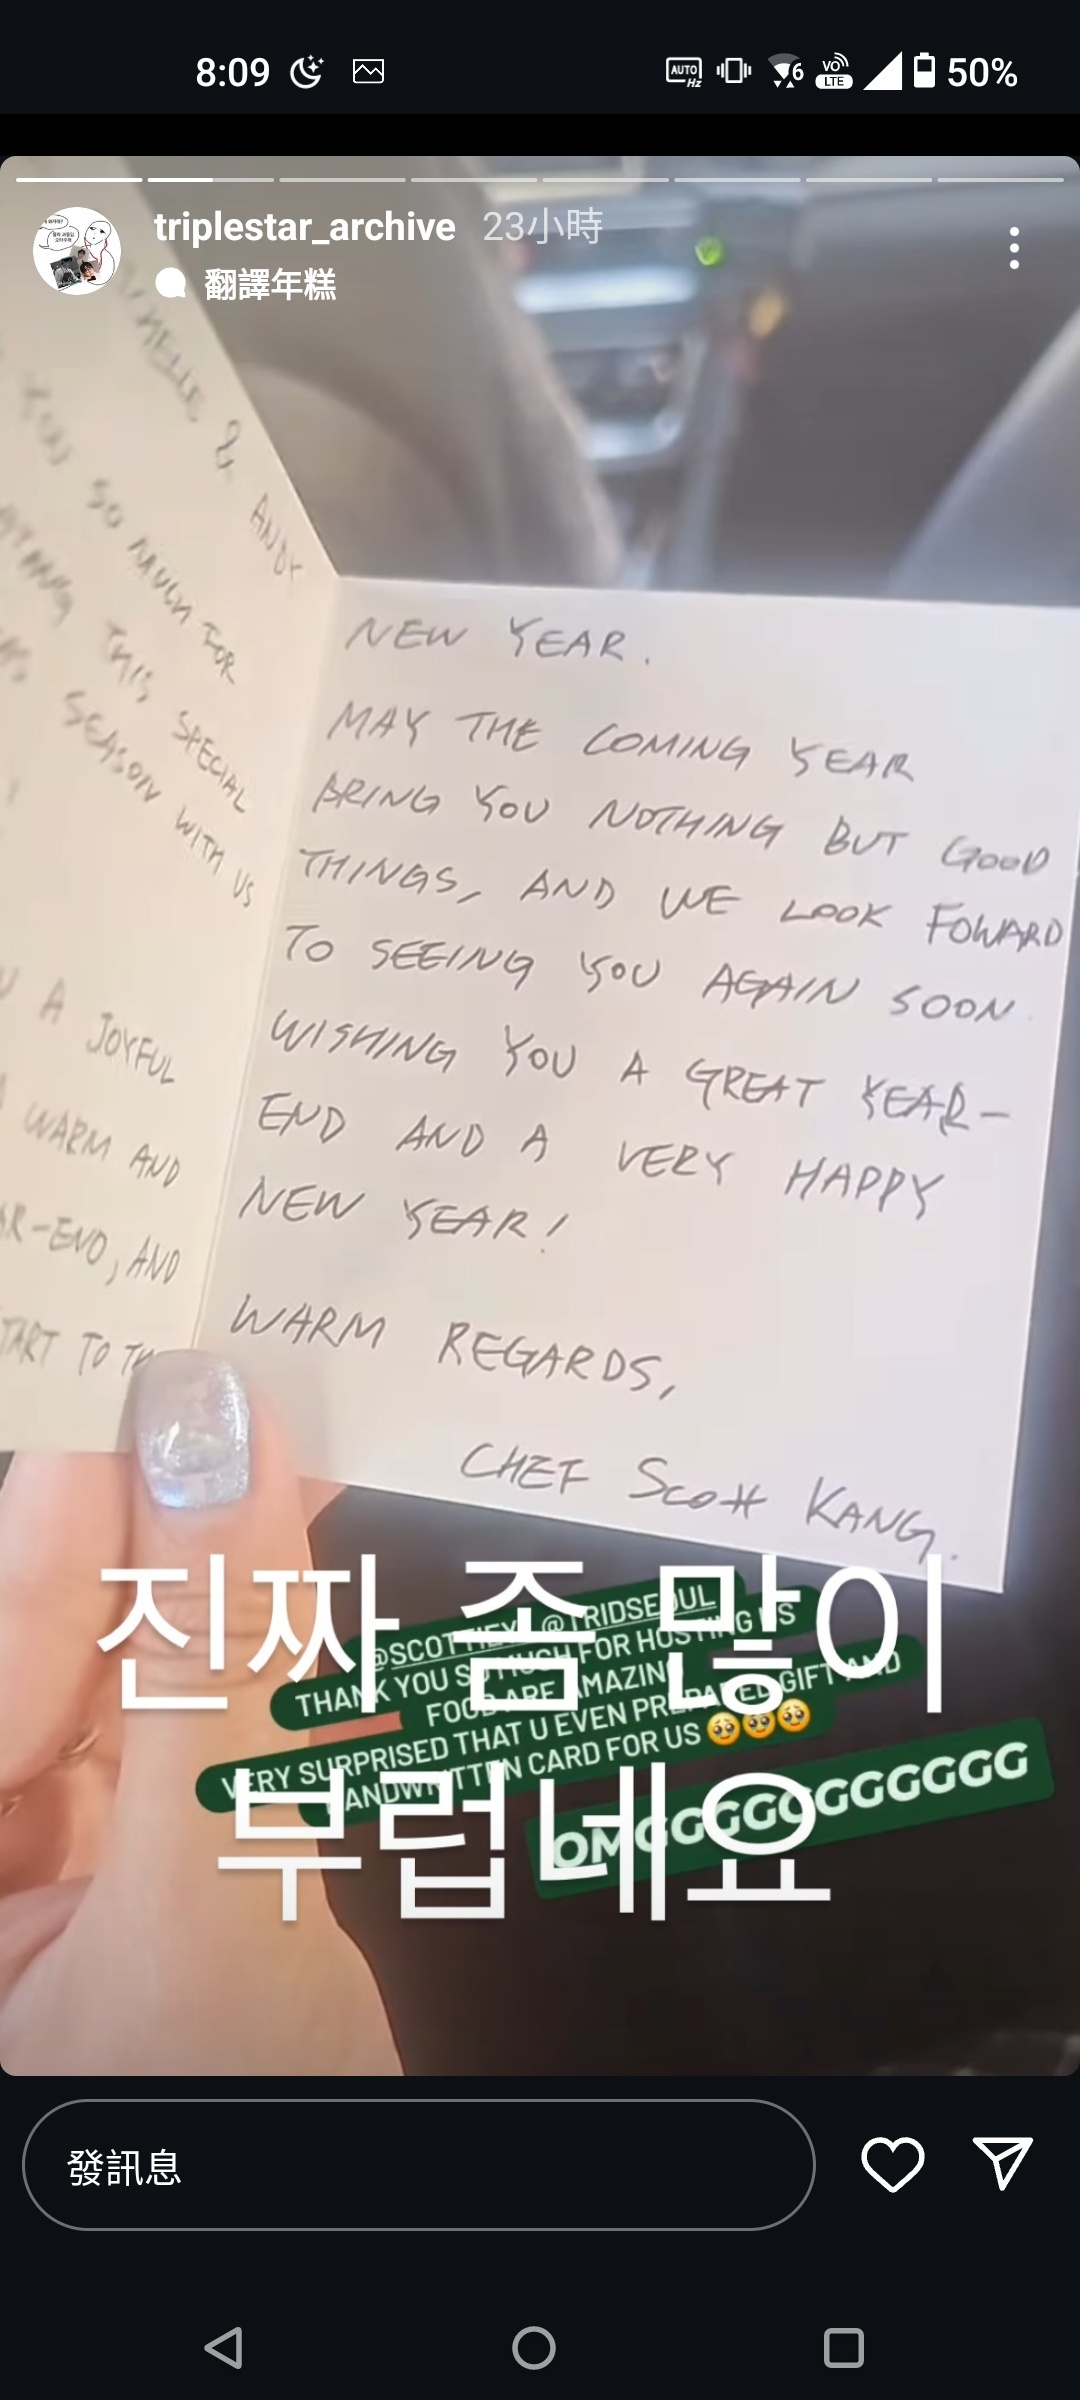 8:09
AUTO
Hz
6
VO
LTE
50%
triplestar_archive 23小時
翻譯年糕
& ANDY
SO MUCH FOR
THIS SPECIAL
SEASON WITH US
A JOYFUL
WARM AND
-END, AND
TO
NEW YEAR.
MAY THE COMING YEAR
BRING YOU NOTHING BUT GOOD
THINGS, AND WE LOOK FOWARD
TO SEEING YOU AGAIN SOON.
WISHING YOU A GREAT YEAR-
END AND A VERY HAPPY
NEW YEAR!
WARM REGARDS,
CHEF SCOTT KANG.
진짜 좀 많이
부럽네요
@TRIDSEOUL
THANK YOU SO MUCH FOR HOSTING US
FOOD ARE AMAZING
VERY SURPRISED THAT U EVEN PREPARED GIFT AND
HANDWRITTEN CARD FOR US 🥹🥹🥹
OMGGGGGGGGGGG
發訊息